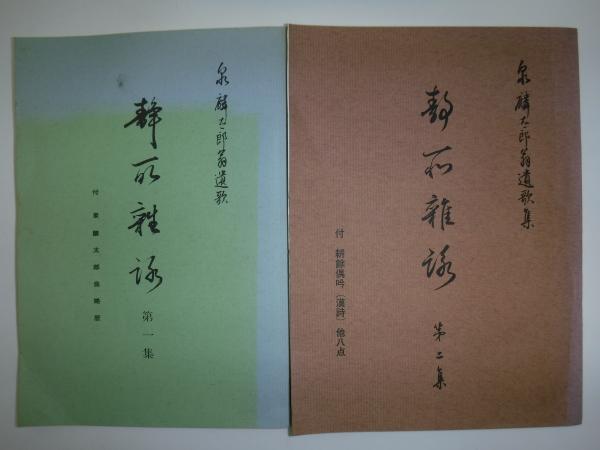 泉麟太郎翁遺歌
静所雑詠 第一集
付 泉麟太郎翁略歴
泉麟太郎翁遺歌集
静所雑詠 第二集
付 耕餘偶吟〔漢詩〕他八点